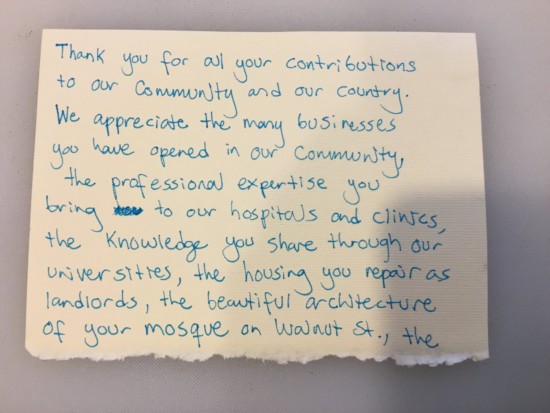 Thank you for all your contributions
to our Community and our country.
We appreciate the many businesses
you have opened in our Community,
the professional expertise you
bring to our hospitals and clinics,
the knowledge you share through our
universities, the housing you repair as
landlords, the beautiful architecture
of your mosque on Walnut St., the